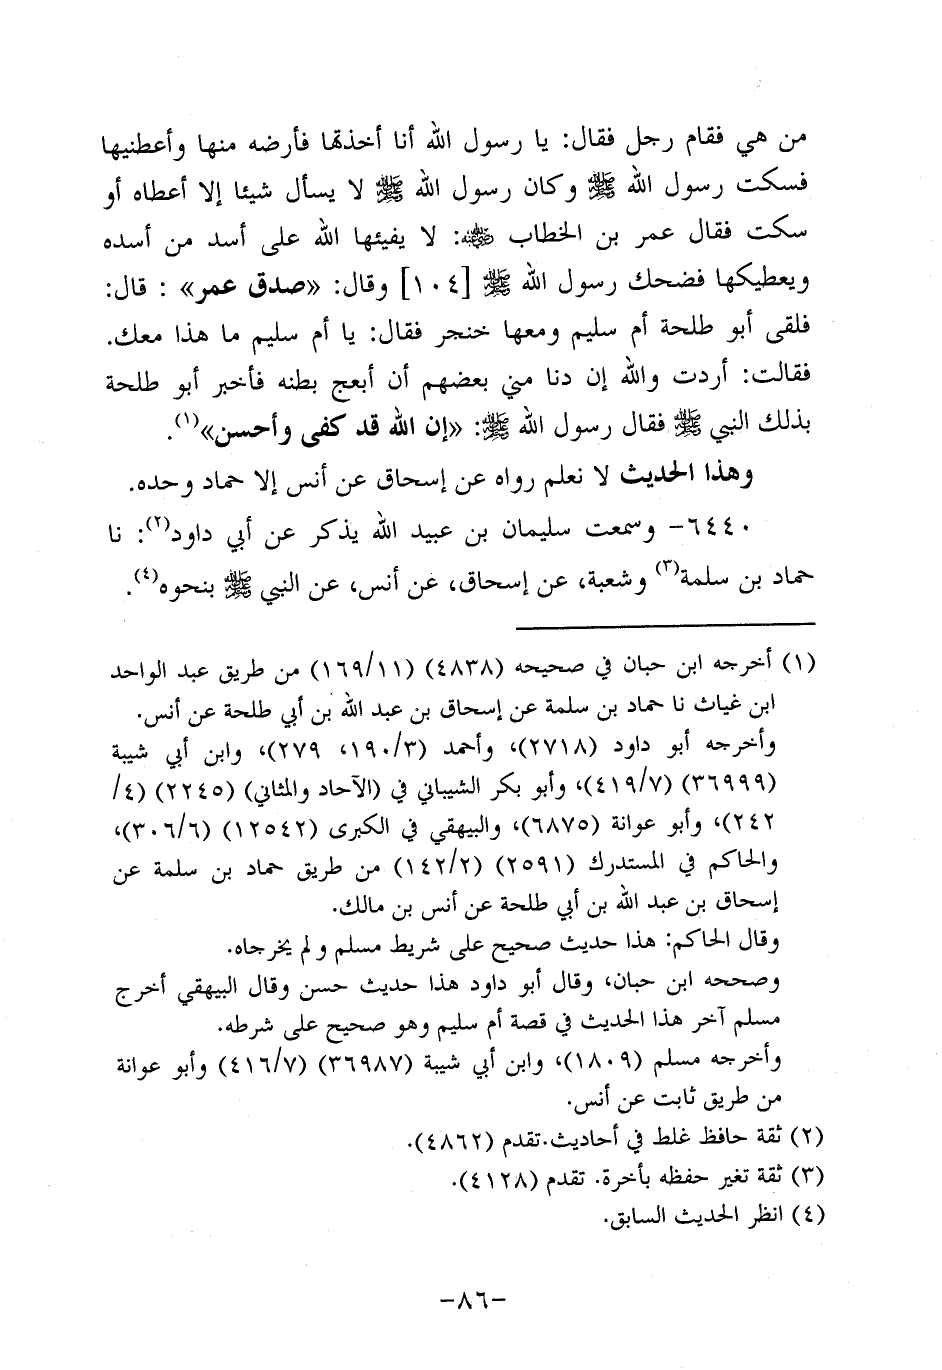 من هي فقام رجل فقال: يا رسول الله أنا أخذتها فأرضه منها وأعطنيها
فسكت رسول الله ﷺ وكان رسول الله ﷺ لا يسأل شيئا إلا أعطاه أو
سكت فقال عمر بن الخطاب رضي الله عنه: لا يفيئها الله على أسد من أسده
ويعطيكها فضحك رسول الله ﷺ [١٠٤] وقال: «صدق عمر» : قال:
فلقى أبو طلحة أم سليم ومعها خنجر فقال: يا أم سليم ما هذا معك.
فقالت: أردت والله إن دنا مني بعضهم أن أبعج بطنه فأخبر أبو طلحة
بذلك النبي ﷺ فقال رسول الله ﷺ: «إن الله قد كفى وأحسن»(١).
وهذا الحديث لا نعلم رواه عن إسحاق عن أنس إلا حماد وحده.
٦٤٤٠- وسمعت سليمان بن عبيد الله يذكر عن أبي داود(٢): نا
حماد بن سلمة(٣) وشعبة، عن إسحاق، عن أنس، عن النبي ﷺ بنحوه(٤).
(١) أخرجه ابن حبان في صحيحه (٤٨٣٨) (١٦٩/١١) من طريق عبد الواحد
ابن غياث نا حماد بن سلمة عن إسحاق بن عبد الله بن أبي طلحة عن أنس.
وأخرجه أبو داود (٢٧١٨)، وأحمد (١٩٠/٣، ٢٧٩)، وابن أبي شيبة
(٣٦٩٩٩) (٤١٩/٧)، وأبو بكر الشيباني في (الآحاد والمثاني) (٢٢٤٥) (٤/
٢٤٢)، وأبو عوانة (٦٨٧٥)، والبيهقي في الكبرى (١٢٥٤٢) (٣٠٦/٦)،
والحاكم في المستدرك (٢٥٩١) (١٤٢/٢) من طريق حماد بن سلمة عن
إسحاق بن عبد الله بن أبي طلحة عن أنس بن مالك.
وقال الحاكم: هذا حديث صحيح على شريط مسلم ولم يخرجاه.
وصححه ابن حبان، وقال أبو داود هذا حديث حسن وقال البيهقي أخرج
مسلم آخر هذا الحديث في قصة أم سليم وهو صحيح على شرطه.
وأخرجه مسلم (١٨٠٩)، وابن أبي شيبة (٣٦٩٨٧) (٤١٦/٧) وأبو عوانة
من طريق ثابت عن أنس.
(٢) ثقة حافظ غلط في أحاديث.تقدم (٤٨٦٢).
(٣) ثقة تغير حفظه بأخرة. تقدم (٤١٢٨).
(٤) انظر الحديث السابق.
-٨٦-